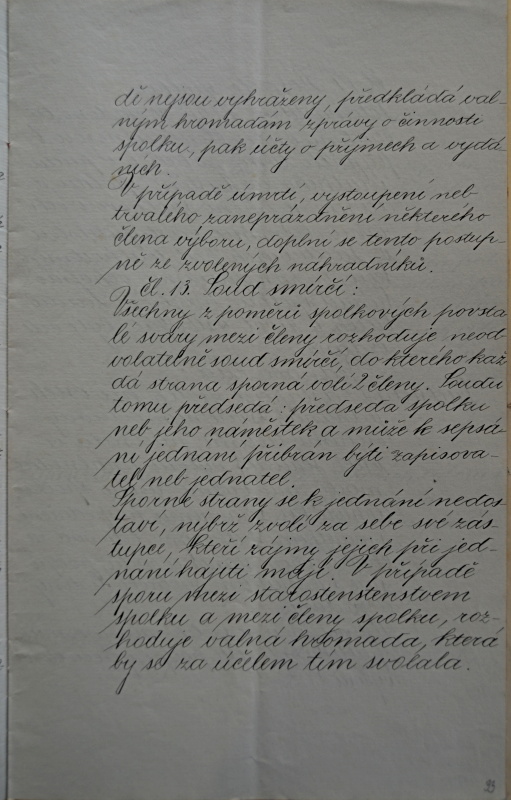 dě nejsou vyhraženy, předkládá val-
ným hromadám zprávy o činnosti
spolku, pak účty o příjmech a vydá-
ních.
V případě úmrtí, vystoupení neb
trvalého zaneprázdnění některého
člena výboru, doplní se tento postup-
ně ze zvolených náhradníků.
čl. 13. Soud smírčí:
Všechny z poměrů spolkových povsta
lé sváry mezi členy rozhoduje neod
volatelně soud smírčí, do kterého kaž
dá strana sporná volí 2 členy. Soudu
tomu předsedá: předseda spolku
neb jeho náměstek a může k sepsá
ní jednání přibrán býti zapisova-
tel neb jednatel.
Sporné strany se k jednání nedos
taví, nýbrž zvolí za sebe své zás
tupce, kteří zájmy jejich při jed-
nání hájiti mají. V případě
sporu mezi starostenstenstvem
spolku a mezi členy spolku, roz-
hoduje valná hromada, která
by se za účelem tím svolala.